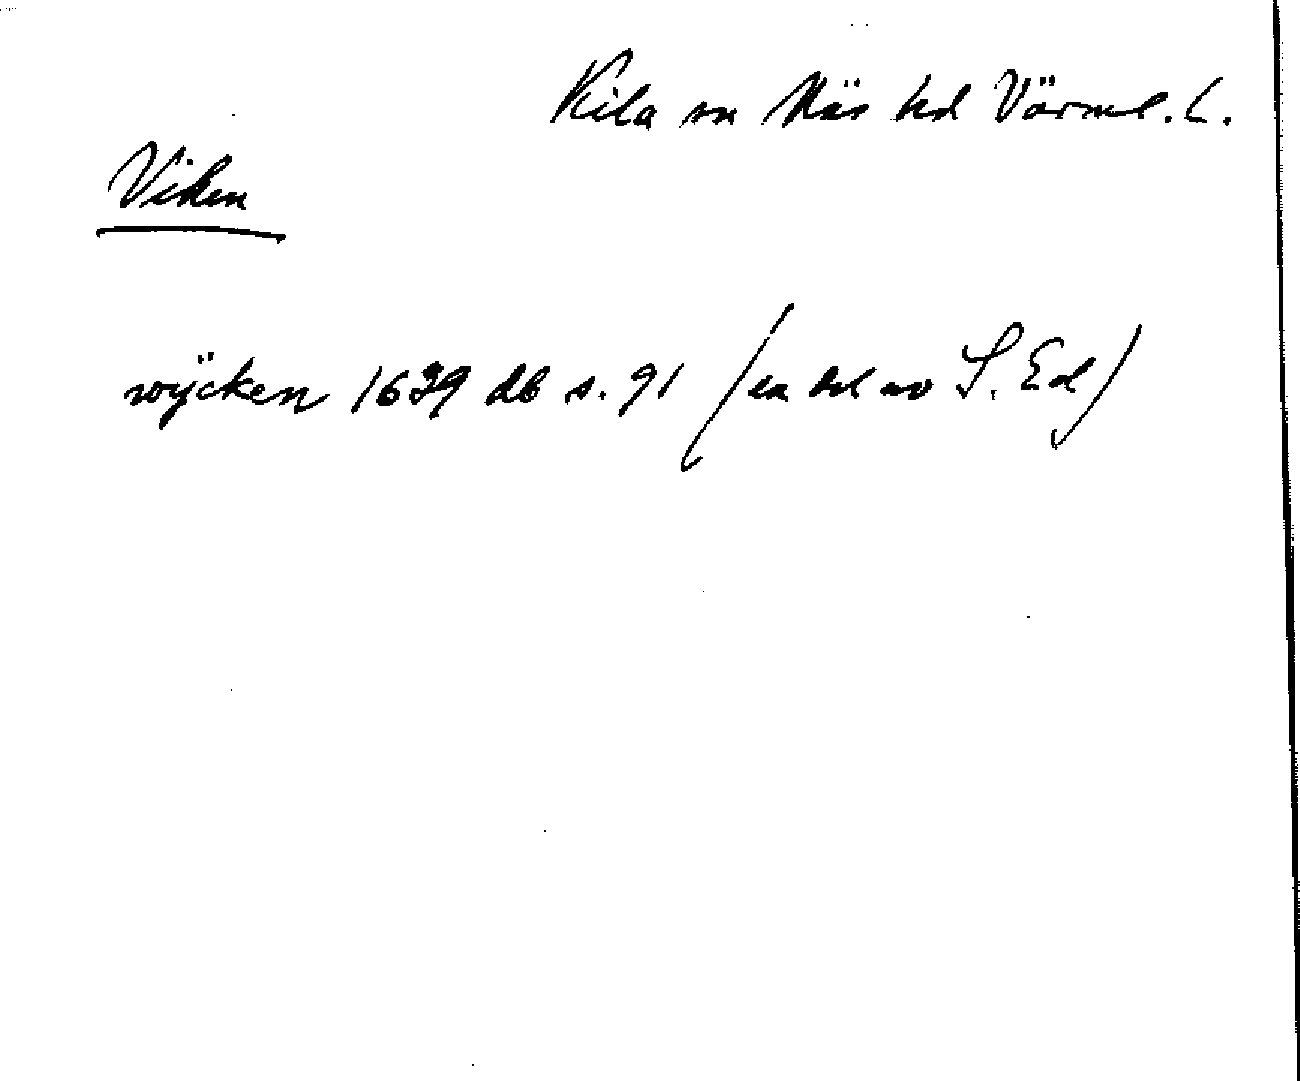 Kila sn Näs hd Värml. L.
Viken
wÿcken 1639 db s. 91 (en del av S. Ed)